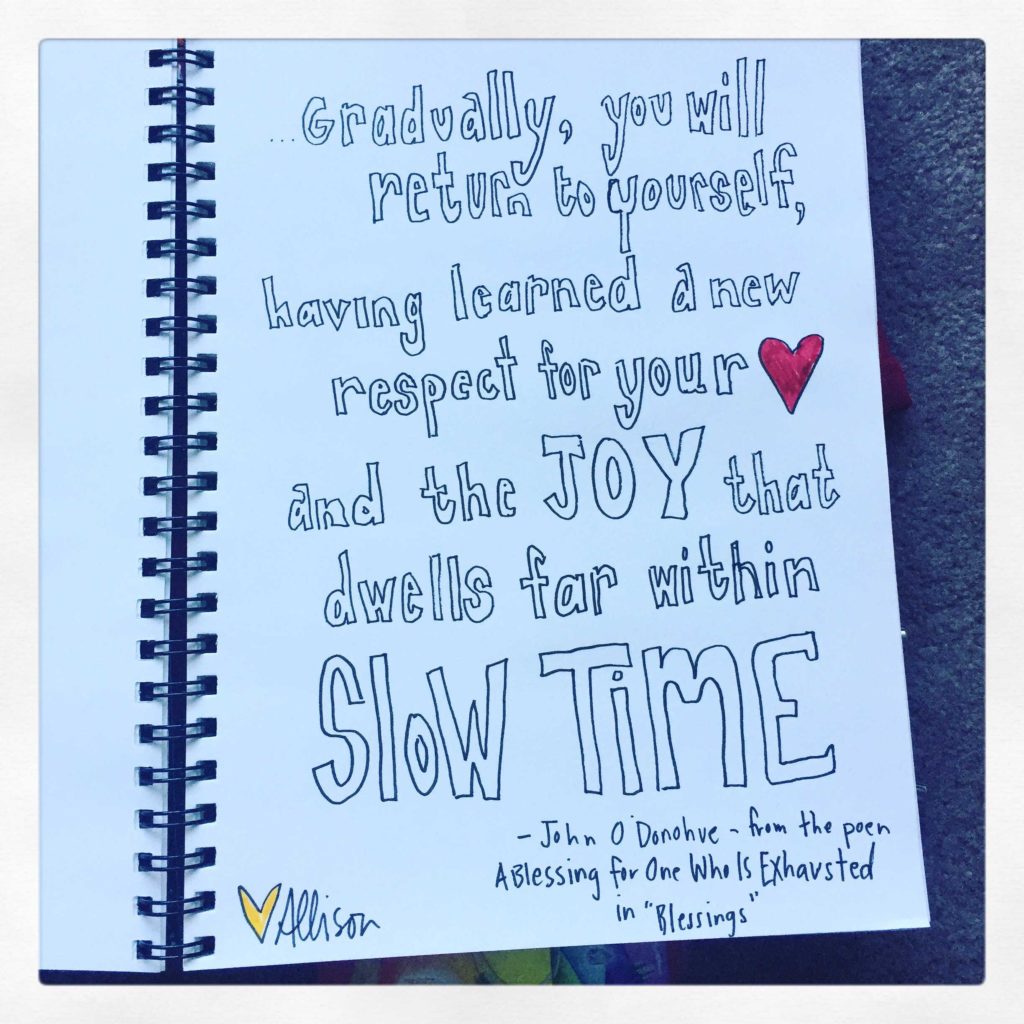 ...Gradually, you will
return to yourself,
having learned a new
respect for your ❤
and the JOY that
dwells far within
SLOW TiME
- John O'Donohue - from the poem
A Blessing for One Who Is Exhausted
in "Blessings"
Allison